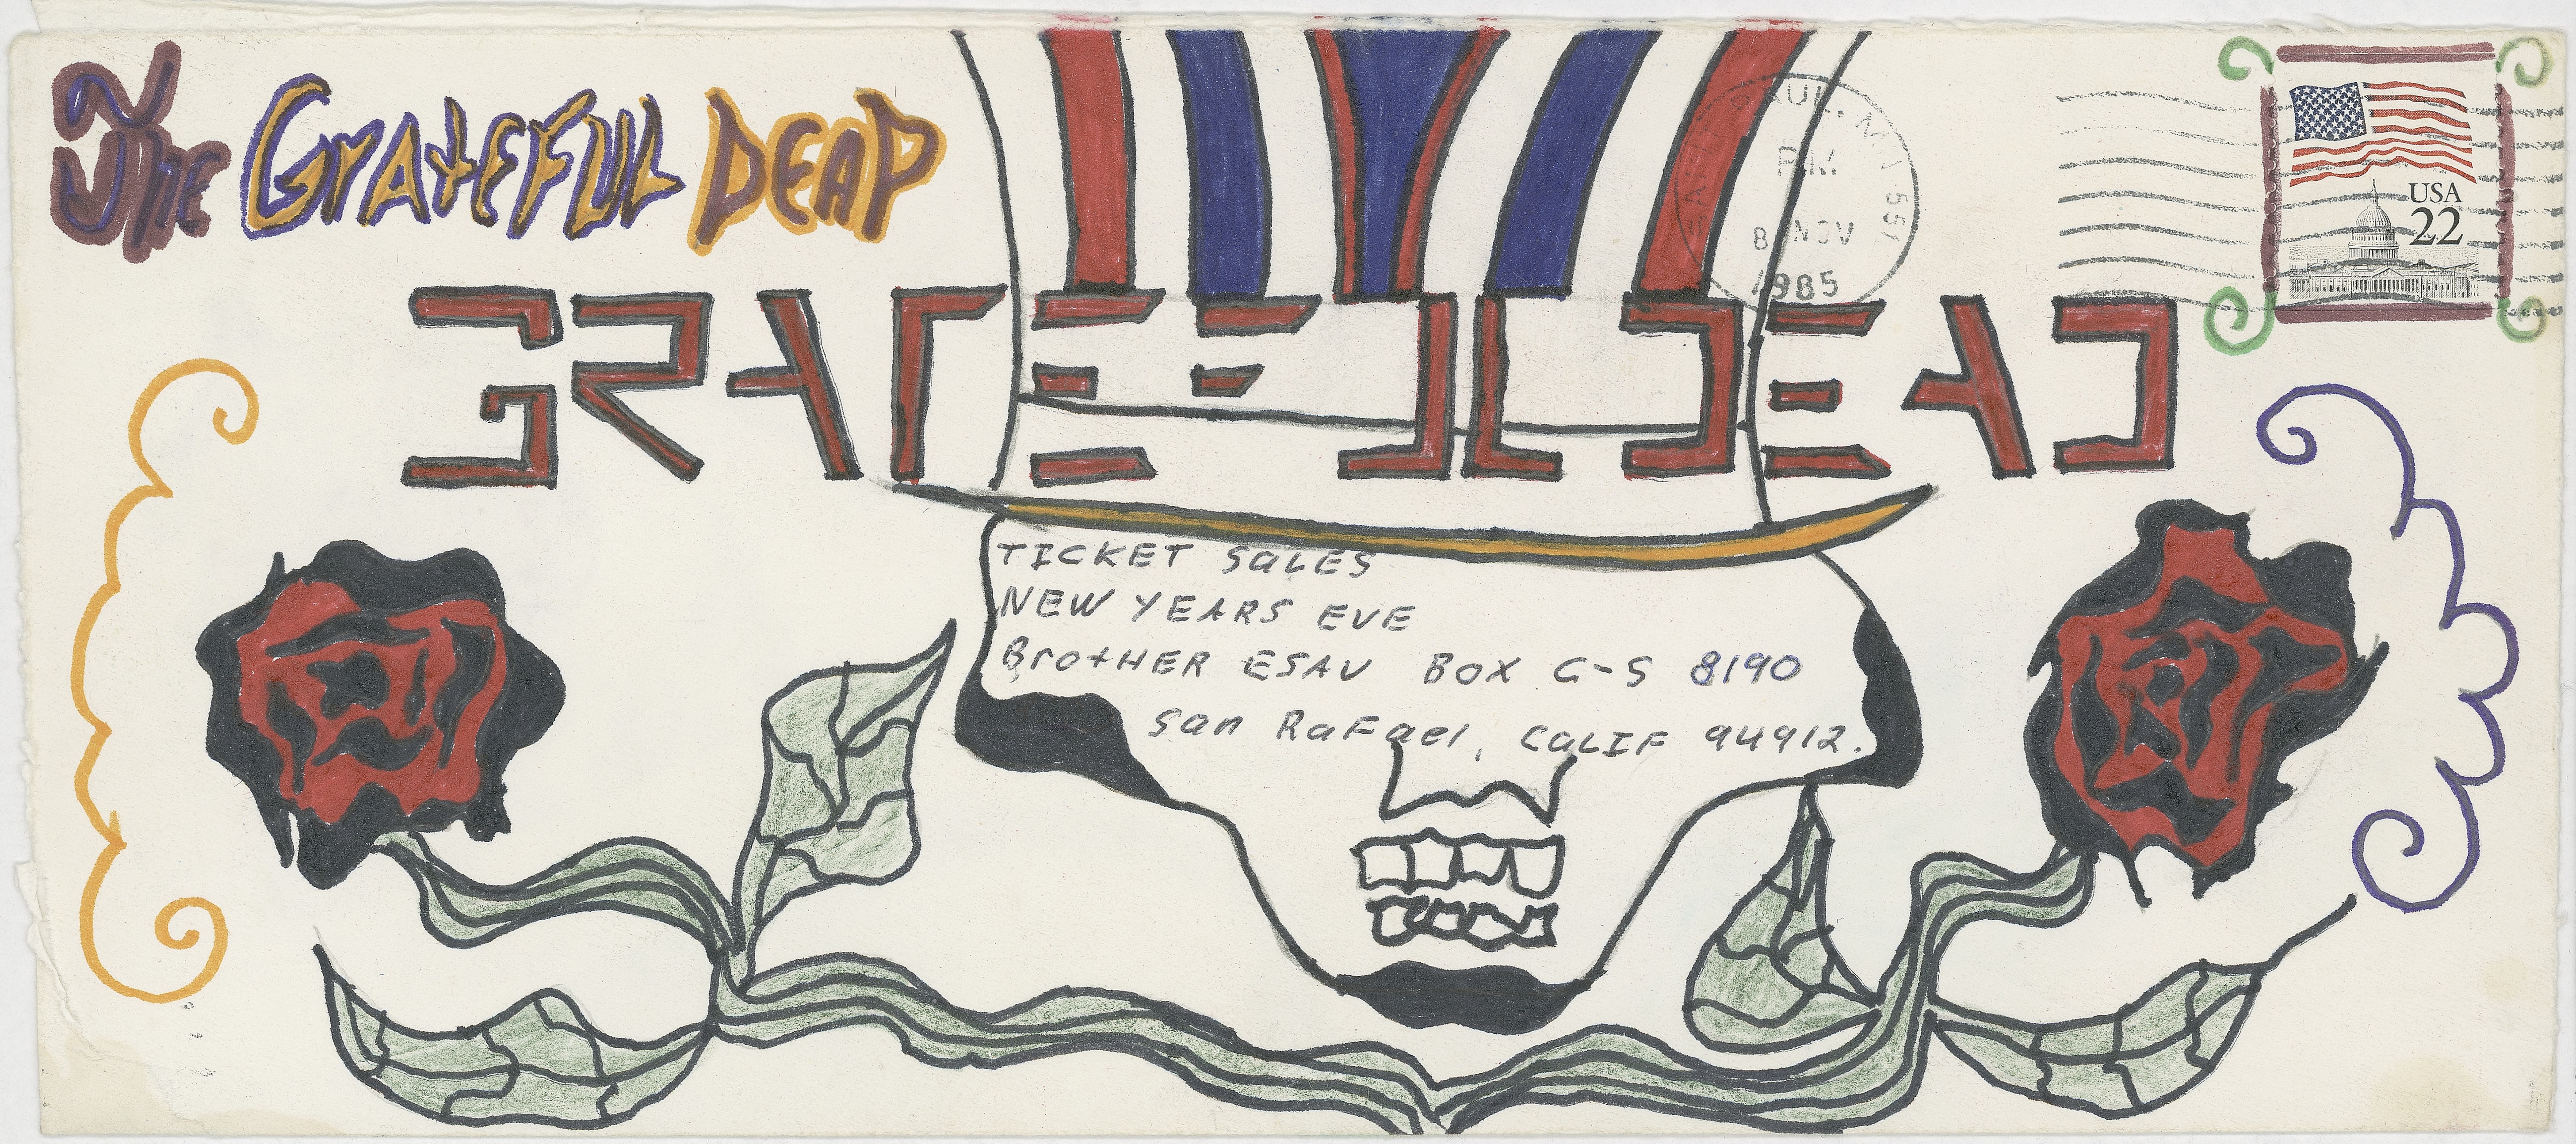 The GrATEFUL DEAD
GRATEFUL DEAD
SAINT PAUL, MN 551
P.M.
8 NOV
1985
USA
22
TICKET SaLES
NEW YEARS EVE
BrotHER ESAU BOX C-S 8190
San RaFael, CaLIF 94912.